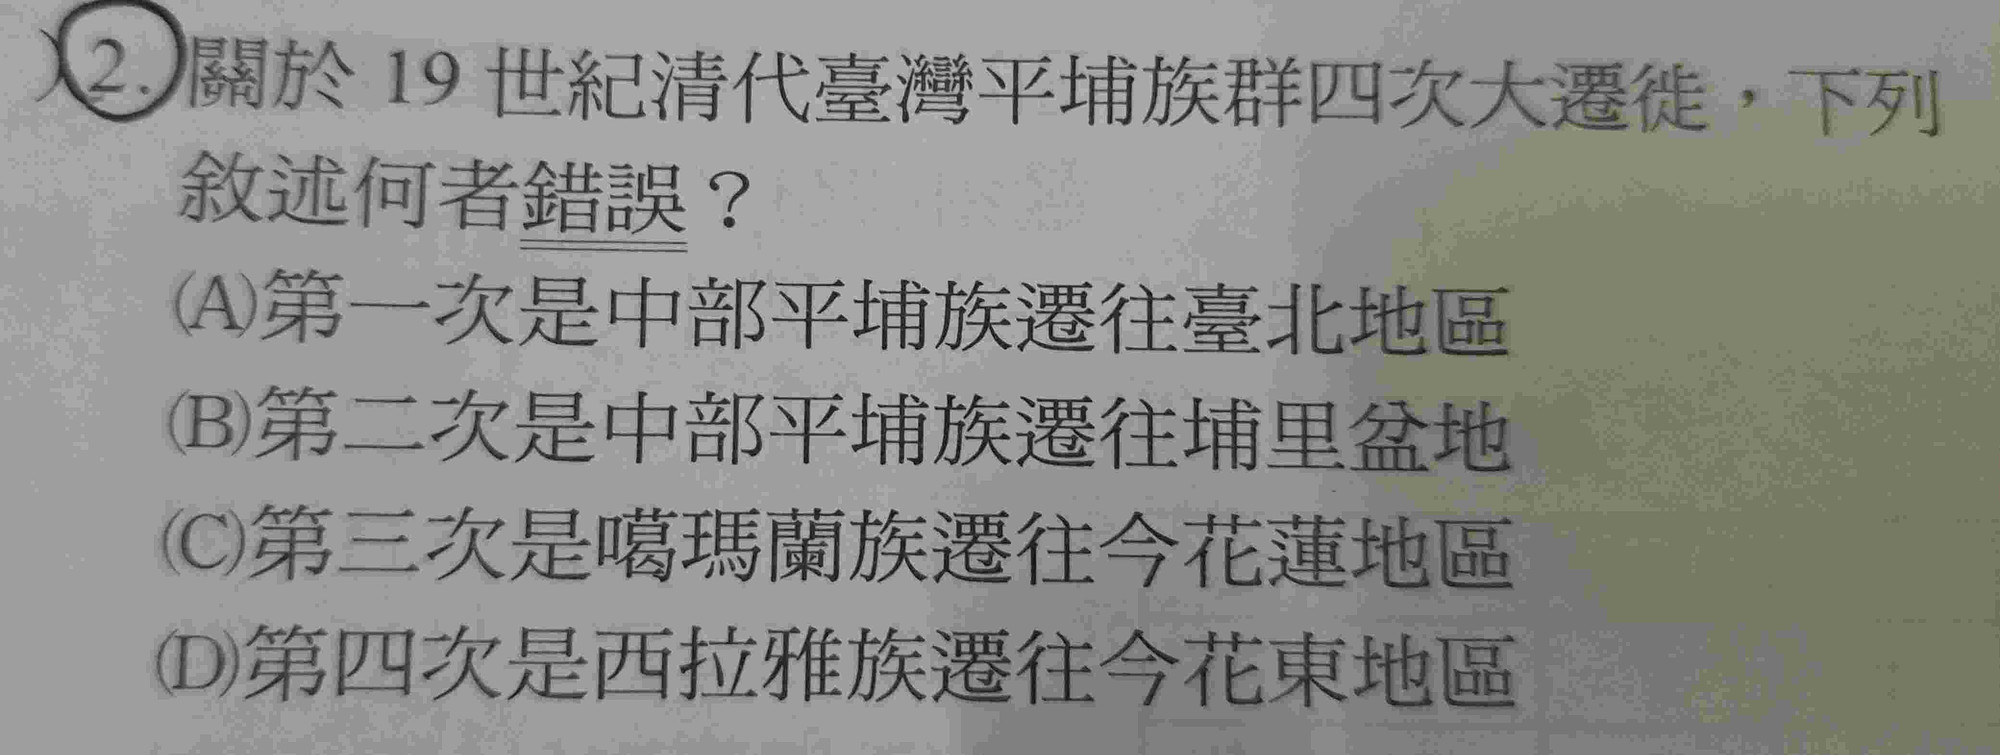 )2.關於 19 世紀清代臺灣平埔族群四次大遷徙，下列
敘述何者錯誤？
(A)第一次是中部平埔族遷往臺北地區
(B)第二次是中部平埔族遷往埔里盆地
(C)第三次是噶瑪蘭族遷往今花蓮地區
(D)第四次是西拉雅族遷往今花東地區